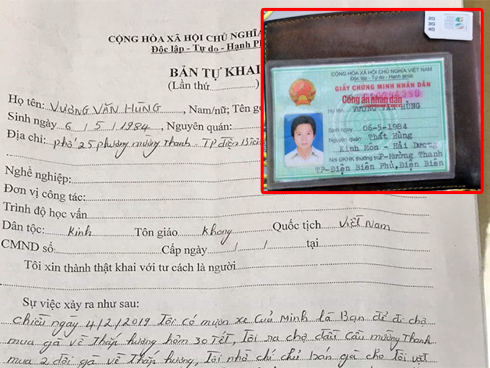 CỘNG HÒA XÃ HỘI CHỦ NGHĨA
Độc lập - Tự do - Hạnh
BẢN TỰ KHAI
(Lần thứ..........)
Họ tên: VƯƠNG VĂN HÙNG, Nam/nữ; Tên
Sinh ngày 6/5/1984, Nguyên quán:
Địa chỉ: phố 25 phường mường thanh TP điện
Nghề nghiệp:
Đơn vị công tác:
Trình độ học vấn
Dân tộc: Kinh Tôn giáo khong Quốc tịch Việt Nam
CMND số: Cấp ngày / / tại
Tôi xin thành thật khai với tư cách là người
Sự việc xảy ra như sau:
chiều ngày 4/2/2019 Tôi có mượn xe của Minh là Bạn để đi chợ
mua gà về Thắp hương hôm 30 Tết, Tôi ra chợ đầu cầu mường Thanh
mua 2 đôi gà về Thắp hương, Tôi nhờ chị chủ bán gà cho Tôi vặt
CỘNG HÒA XÃ HỘI CHỦ NGHĨA VIỆT NAM
Độc lập - Tự do - Hạnh phúc
GIẤY CHỨNG MINH NHÂN DÂN
Công an nhân dân
VƯƠNG VĂN HÙNG
Sinh ngày 06-5-1984
Nguyên quán Thất Hùng
Kinh Môn - Hải Dương
Nơi ĐKHK thường trú P-Mường Thanh
TP-Điện Biên Phủ, Điện Biên
2G
3G
4G